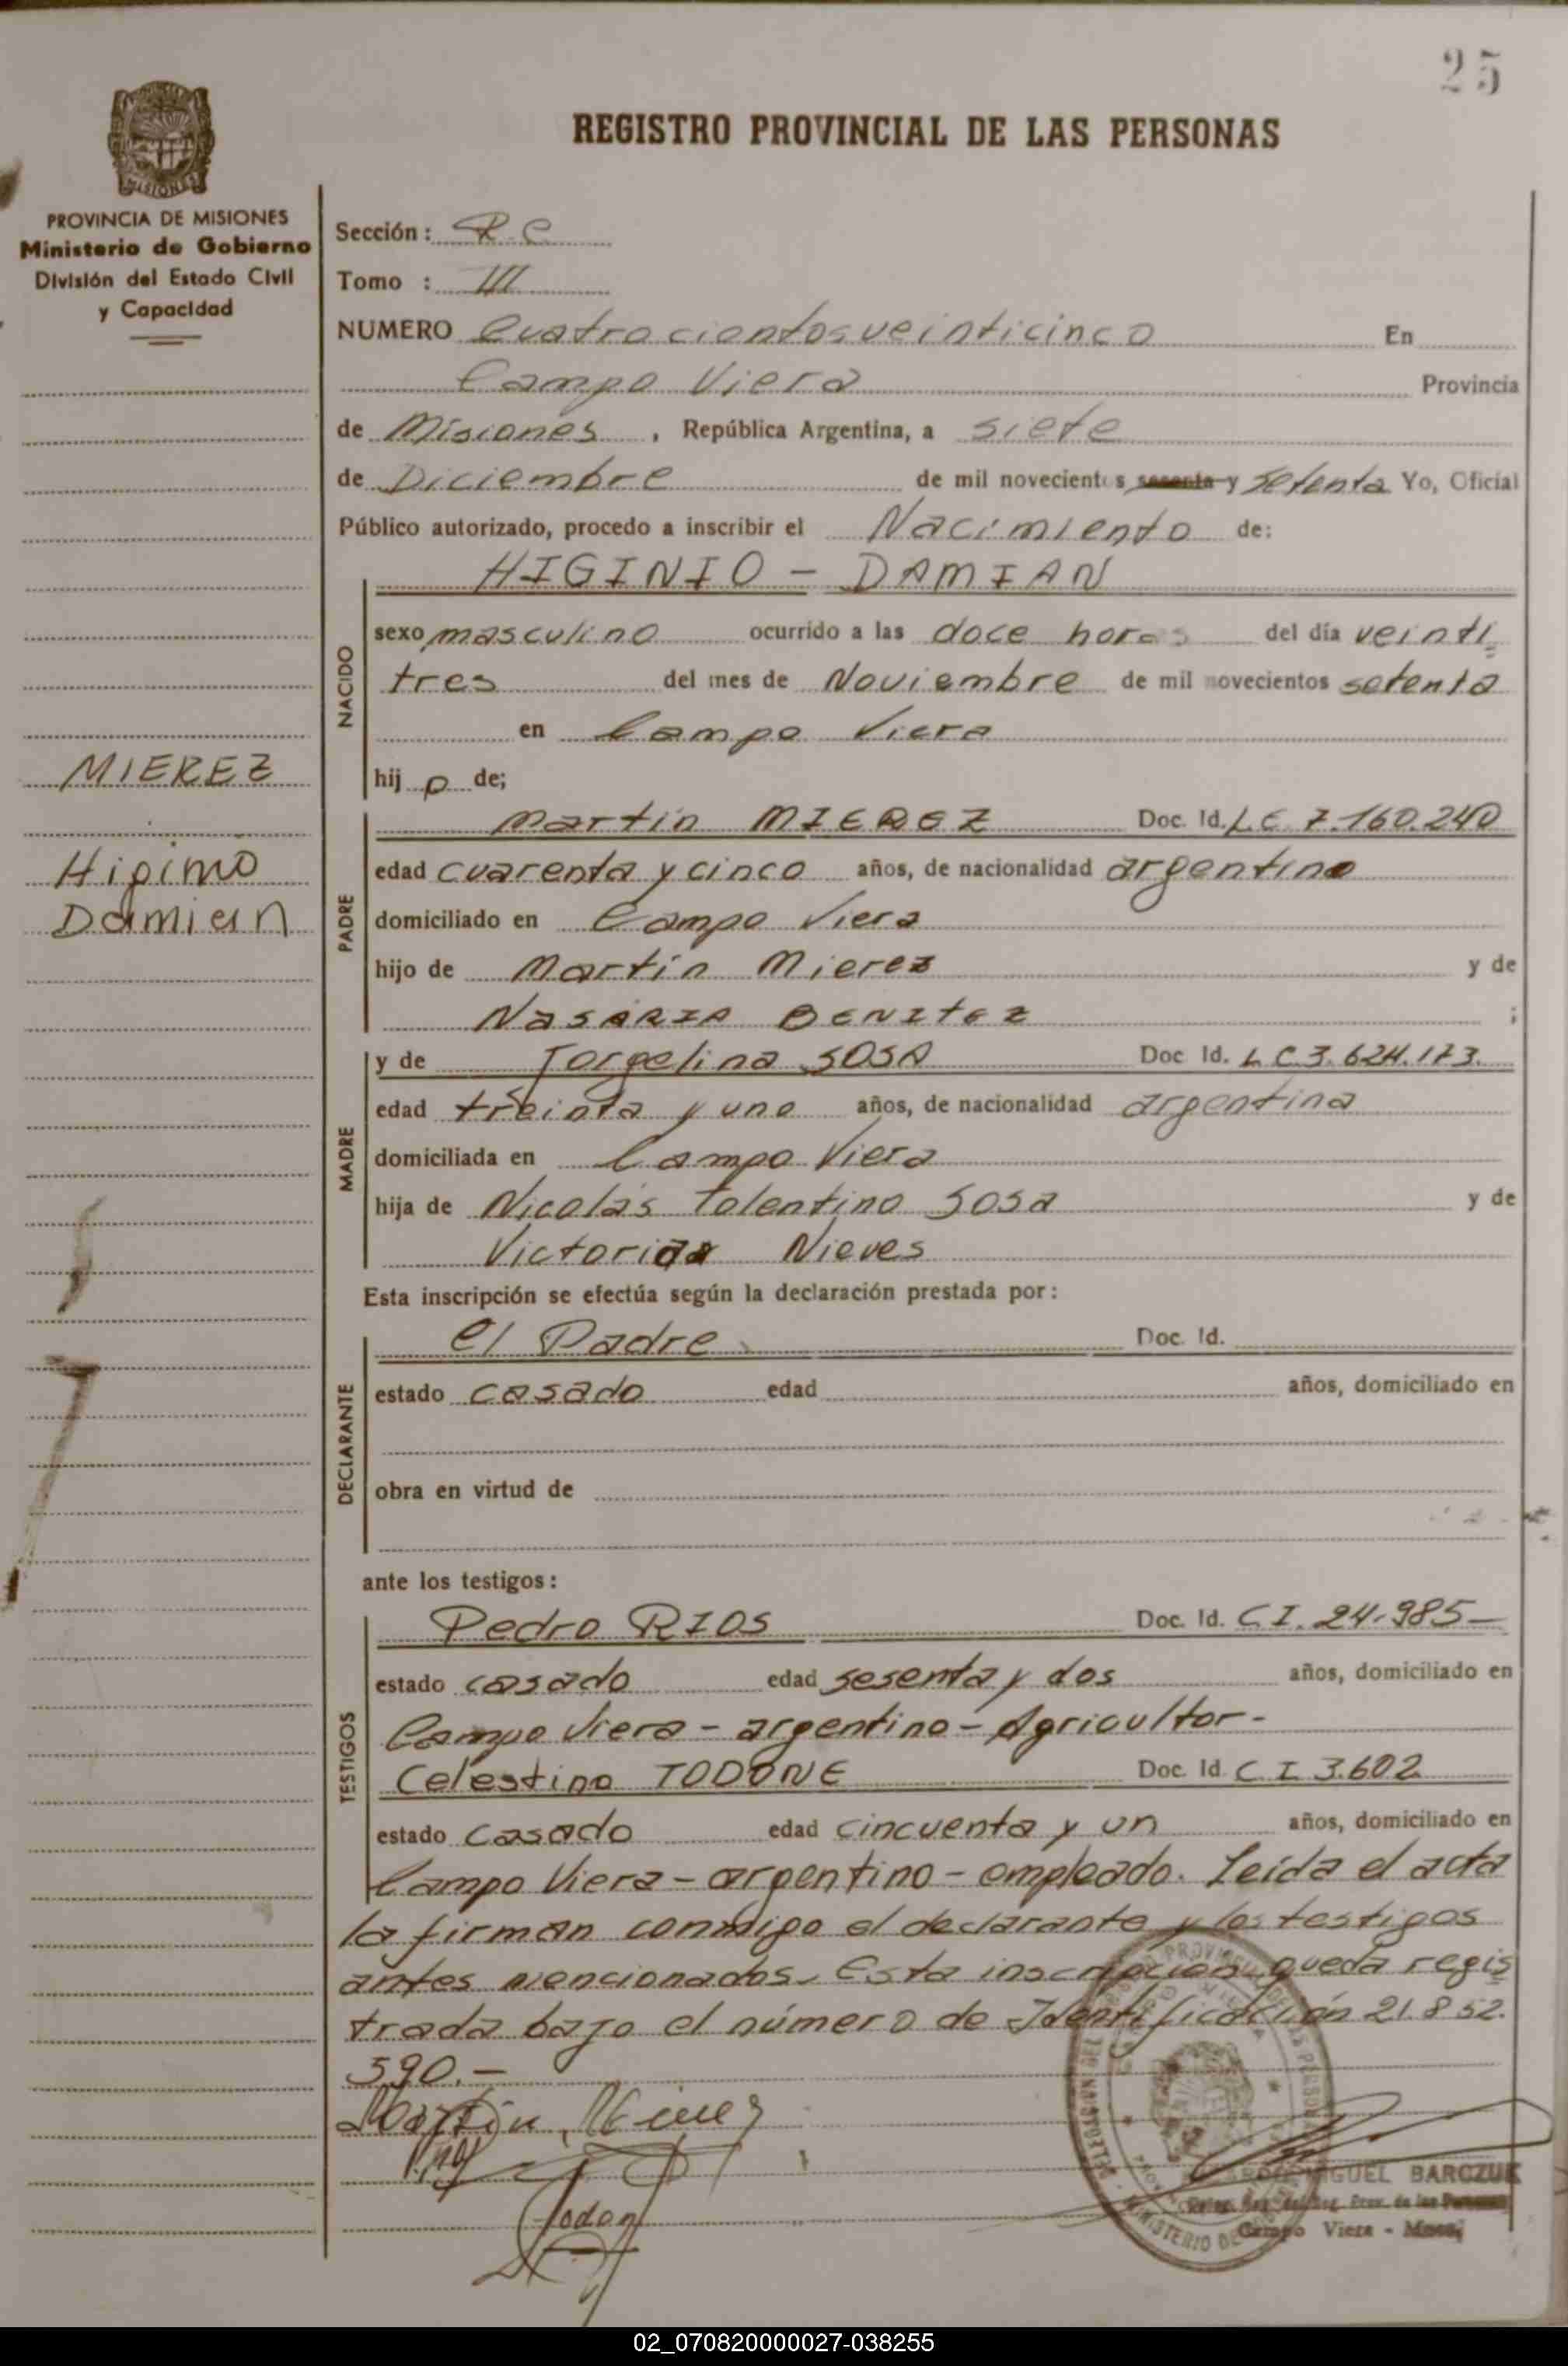 25
REGISTRO PROVINCIAL DE LAS PERSONAS
MISIONES
PROVINCIA DE MISIONES
Ministerio de Gobierno
División del Estado Civil
y Capacidad
Sección: R.C
Tomo : III
NUMERO Cuatrocientos veinticinco En
Campo Viera Provincia
de Misiones, República Argentina, a siete
de Diciembre de mil novecientos sesenta y setenta Yo, Oficial
Público autorizado, procedo a inscribir el Nacimiento de:
HIGINIO - DAMIAN
NACIDO
sexo masculino ocurrido a las doce horas del día veinti
tres del mes de Noviembre de mil novecientos setenta
en Campo Viera
MIEREZ
hij o de;
Martín MIEREZ Doc. Id. L E 7.160.240
Higinio
Damian
PADRE
edad cuarenta y cinco años, de nacionalidad argentino
domiciliado en Campo Viera
hijo de Martín Mierez y de
NASARIA BENITEZ ;
y de Jorgelina SOSA Doc Id. L C 3.624.173.
MADRE
edad treinta y uno años, de nacionalidad argentina
domiciliada en Campo Viera
hija de Nicolás Tolentino Sosa y de
Victoria Nieves
Esta inscripción se efectúa según la declaración prestada por:
el Padre Doc. Id.
DECLARANTE
estado casado edad años, domiciliado en
obra en virtud de
ante los testigos:
Pedro RIOS Doc. Id. C I. 24.985-
TESTIGOS
estado casado edad sesenta y dos años, domiciliado en
Campo Viera - argentino - Agricultor -
Celestino TODONE Doc. Id. C I 3.602
estado casado edad cincuenta y un años, domiciliado en
Campo Viera - argentino - empleado. Leída el acta
la firman conmigo el declarante y los testigos
antes mencionados. Esta inscripción queda regis
trada bajo el número de Identificación 21.852.
590.-
Martin Mierez
MIGUEL BARCZUK
Campo Viera - Mnes.
02_070820000027-038255